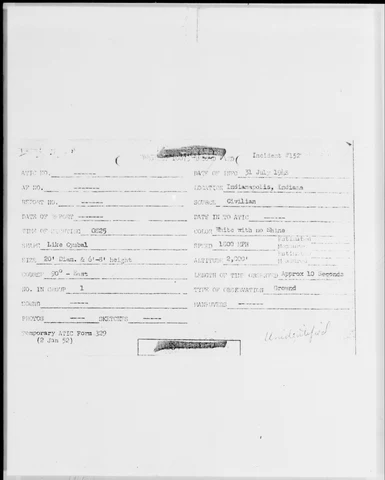 Incident #152
ATIC NO. ----- DATE OF INFO 31 July 1948
AF NO. ----- LOCATION Indianapolis, Indiana
REPORT NO. ----- SOURCE Civilian
DATE OF REPORT ----- DATE IN TO ATIC -----
TIME OF SIGHTING 0825 COLOR White with no Shine
SHAPE Like Cymbal SPEED 1000 MPH
SIZE 20' Diam. & 6'-8' height ALTITUDE 2,000'
COURSE 90° - East LENGTH OF TIME OBSERVED Approx 10 Seconds
NO. IN GROUP 1 TYPE OF OBSERVATION Ground
SOUNDS ----- MANEUVERS -----
PHOTOS ---- SKETCHES ----
Temporary ATIC Form 329
(2 Jan 52)
Unidentified